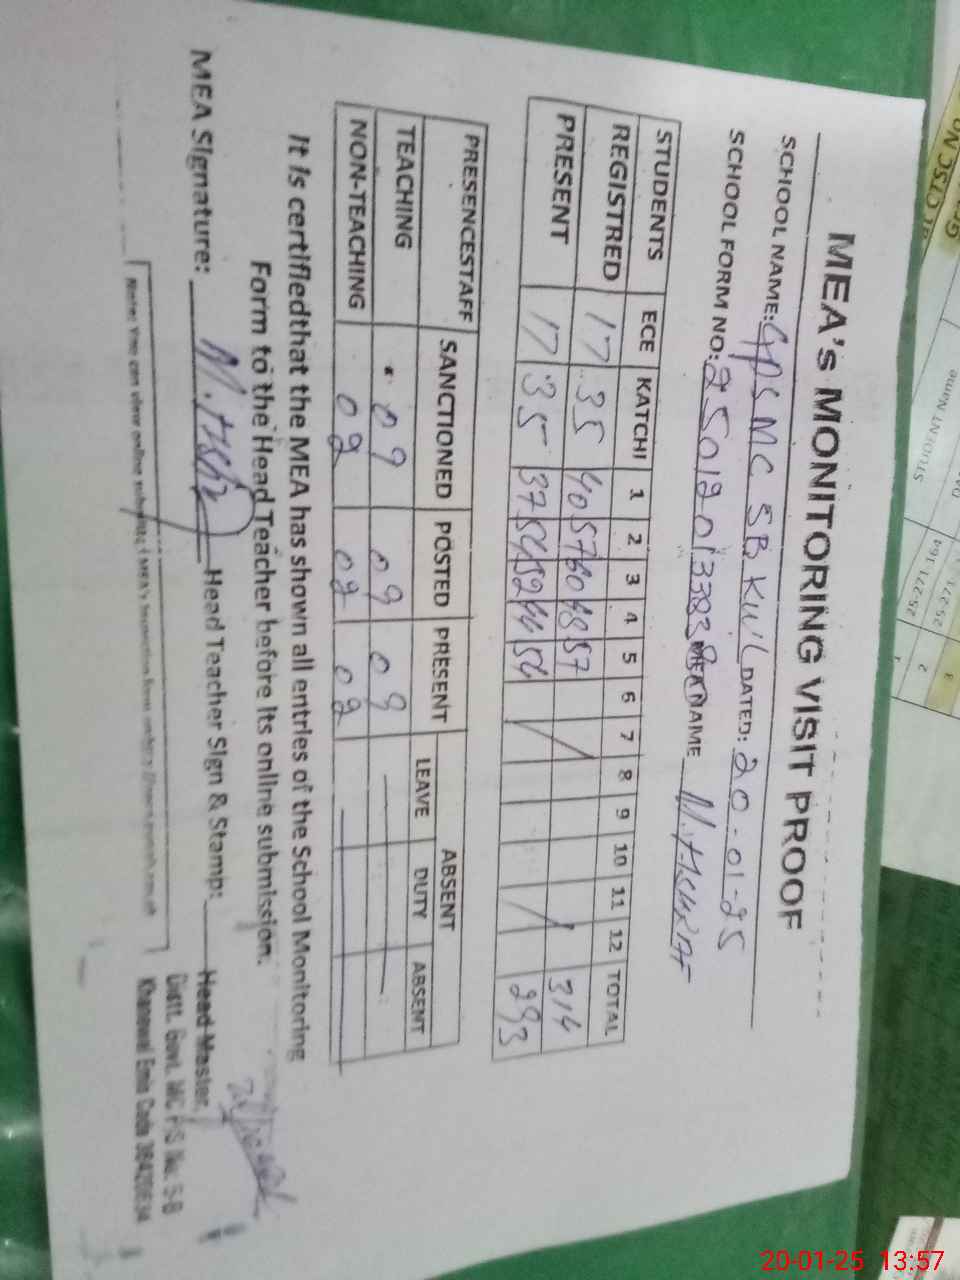 MEA's MONITORING VISIT PROOF
SCHOOL NAME: GPS MC 5B KWL DATED: 20-01-25
SCHOOL FORM NO: 25019201338388 MEA NAME M. ASHRAF
STUDENTS ECE KATCHI 1 2 3 4 5 6 7 8 9 10 11 12 TOTAL
REGISTRED 17 35 40 57 60 48 57 314
PRESENT 17 35 37 54 52 44 54 293
PRESENCESTAFF SANCTIONED POSTED PRESENT ABSENT
LEAVE DUTY ABSENT
TEACHING 09 09 09
NON-TEACHING 02 02 02
It is certifiedthat the MEA has shown all entries of the School Monitoring
Form to the Head Teacher before its online submission.
MEA Signature: Head Teacher Sign & Stamp:
Head Master,
Distt. Govt. MC P/S No. 5-B
Khanewal Emis Code
Note: You can view online
STUDENT NAME
20-01-25 13:57